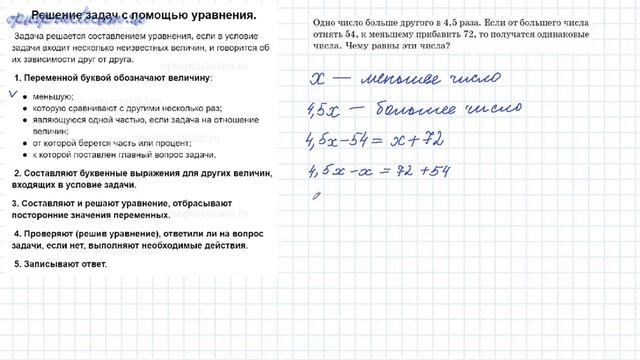 Решение задач с помощью уравнения.
Задача решается составлением уравнения, если в условие
задачи входит несколько неизвестных величин, и говорится об
их зависимости друг от друга.
1. Переменной буквой обозначают величину:
● меньшую;
● которую сравнивают с другими несколько раз;
● являющуюся одной частью, если задача на отношение
величин;
● от которой берется часть или процент;
● к которой поставлен главный вопрос задачи.
2. Составляют буквенные выражения для других величин,
входящих в условие задачи.
3. Составляют и решают уравнение, отбрасывают
посторонние значения переменных.
4. Проверяют (решив уравнение), ответили ли на вопрос
задачи, если нет, выполняют необходимые действия.
5. Записывают ответ.
Одно число больше другого в 4,5 раза. Если от большего числа
отнять 54, к меньшему прибавить 72, то получатся одинаковые
числа. Чему равны эти числа?
x — меньшее число
4,5x — большее число
4,5x-54=x+72
4,5x-x=72+54